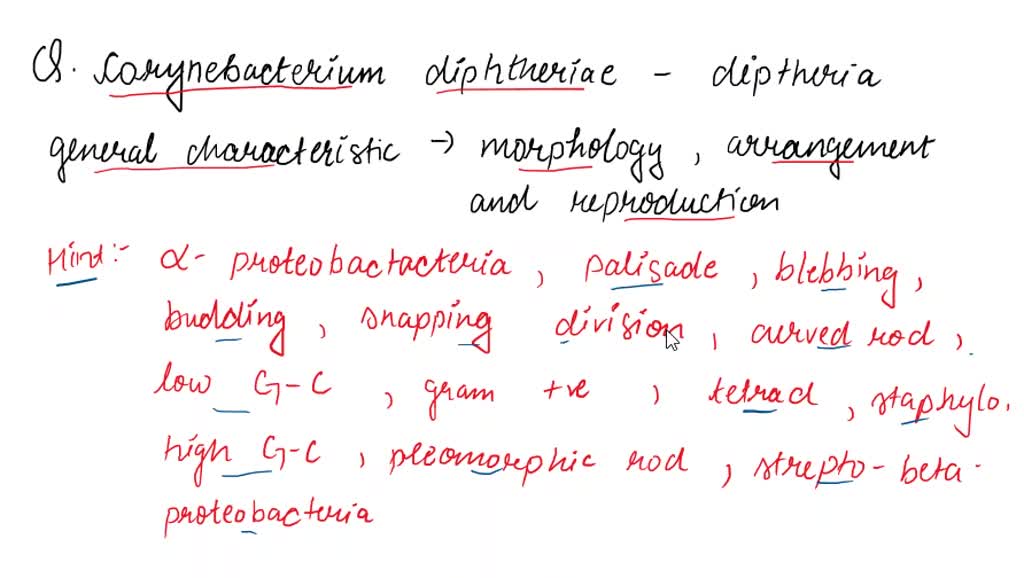 Q. Corynebacterium diphtheriae - diptheria
general characteristic → morphology, arrangement
and reproduction
Hint:- α- proteobactacteria, palisade, blebbing,
budding, snapping division, curved rod,
low G-C, gram +ve, tetrad, staphylo,
high G-C, pleomorphic rod, strepto-beta-
proteobacteria